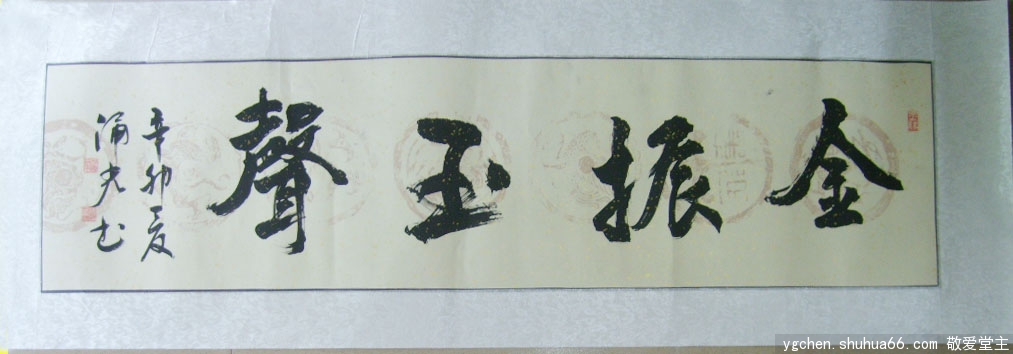 金振玉聲
辛卯夏
涌光书
ygchen.shuhua66.com 敬爱堂主